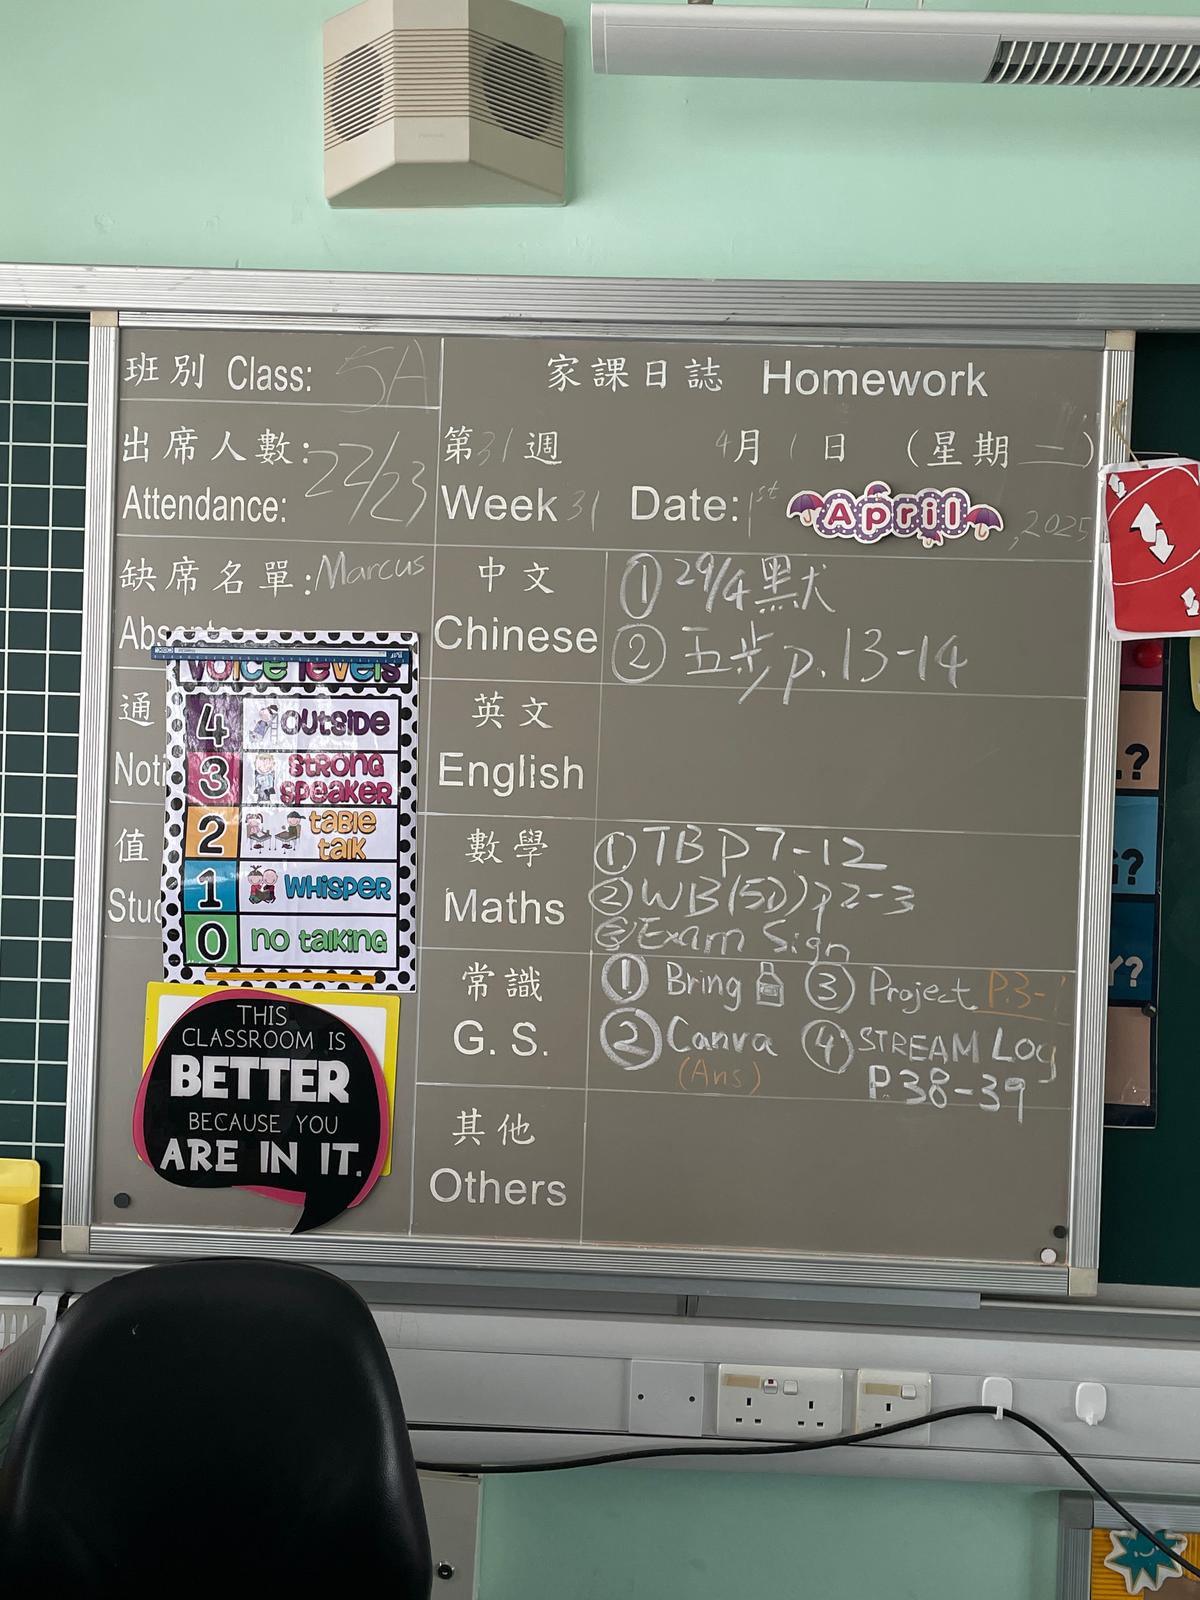 班別 Class: 5A
家課日誌 Homework
出席人數: 22/23
Attendance:
第31週 4月1日 (星期二)
Week 31 Date: 1st April, 2025
缺席名單: Marcus
Absentees
中文
Chinese
① 29/4 默
② 五步 p.13-14
通
Noti
voice levels
4 OUTSIDE
3 STRONG SPEAKER
2 TABLE TALK
1 WHISPER
0 NO TALKING
英文
English
值
Stud
數學
Maths
① TB p7-12
② WB(5D) p2-3
③ Exam Sign
常識
G. S.
① Bring ③ Project P.3-
② Canva ④ STREAM LOG
(Ans) P.38-39
其他
Others
THIS
CLASSROOM IS
BETTER
BECAUSE YOU
ARE IN IT.
.?
?
Y?